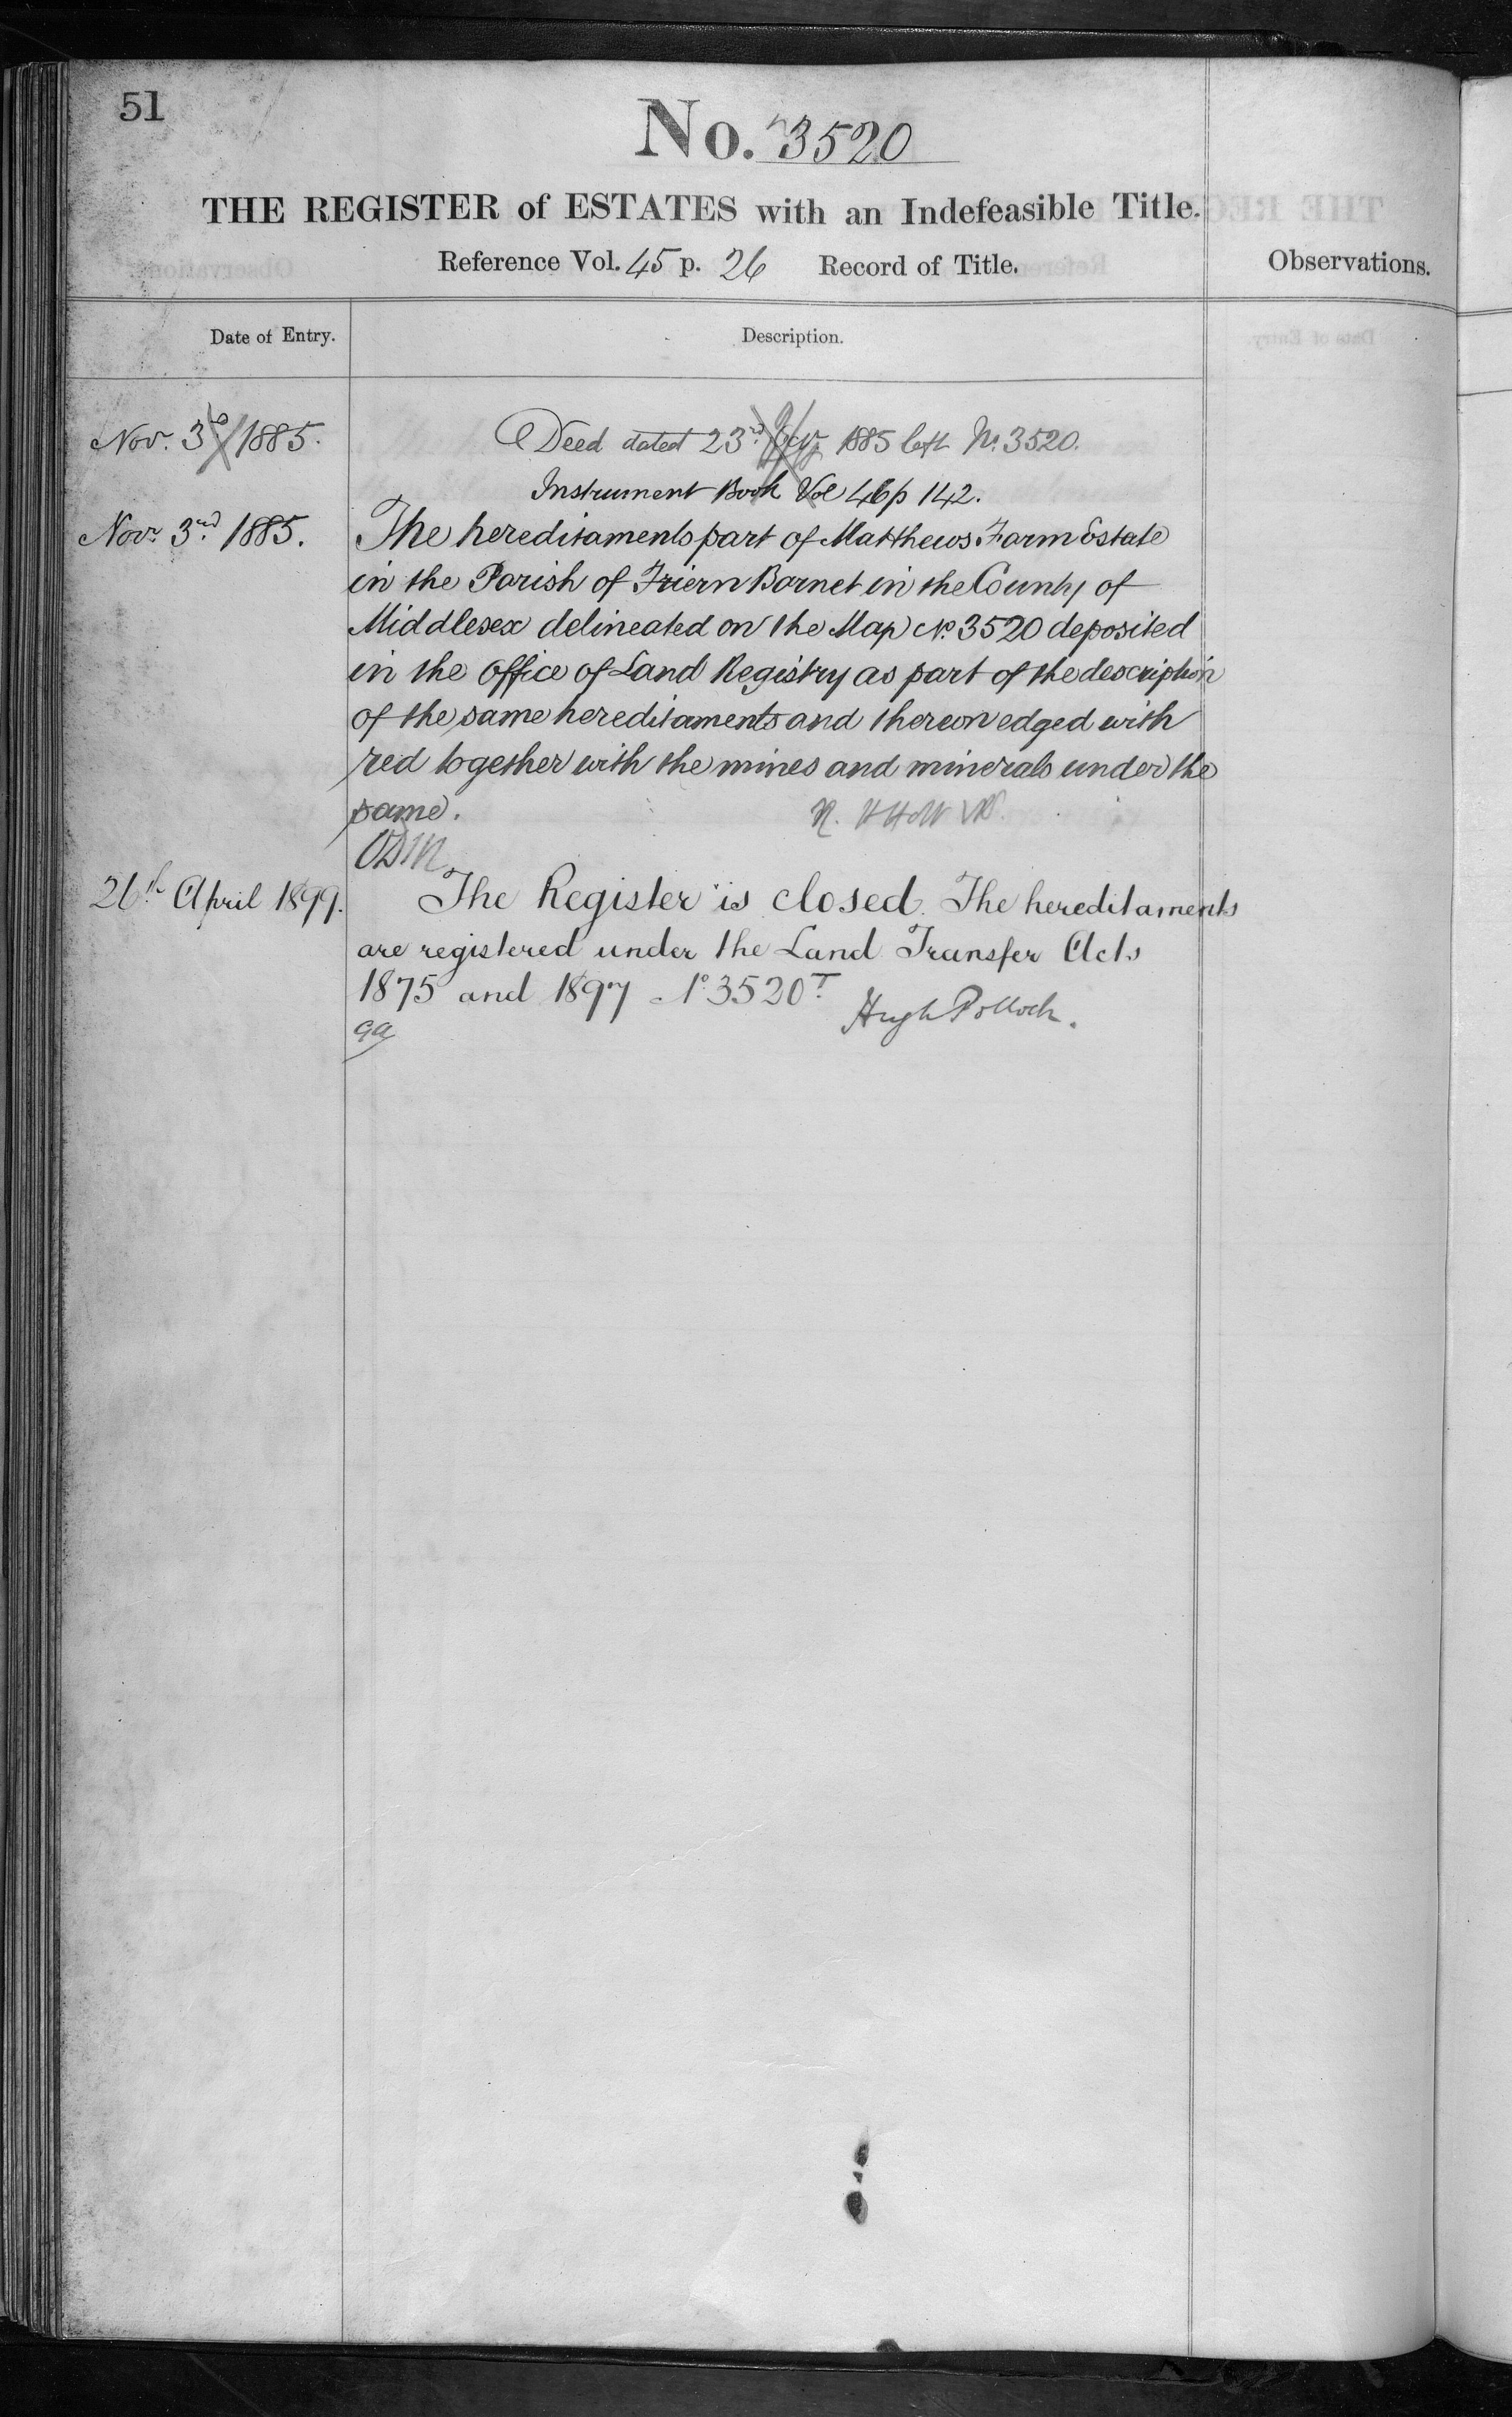 51
No. 3520
THE REGISTER of ESTATES with an Indefeasible Title.
Reference Vol. 45 p. 26 Record of Title.
Observations.
Date of Entry.
Description.
Nov. 3rd 1885.
Deed dated 23rd 1885 left No. 3520.
Instrument Book Vol 46 p 142.
Novr. 3rd 1885.
The hereditaments part of Matthews Farm Estate
in the Parish of Friern Barnet in the County of
Middlesex delineated on the Map No. 3520 deposited
in the Office of Land Registry as part of the description
of the same hereditaments and thereon edged with
red together with the mines and minerals under the
same.
26th April 1899.
The Register is closed. The hereditaments
are registered under the Land Transfer Acts
1875 and 1897 No. 3520T.
Hugh Pollock.